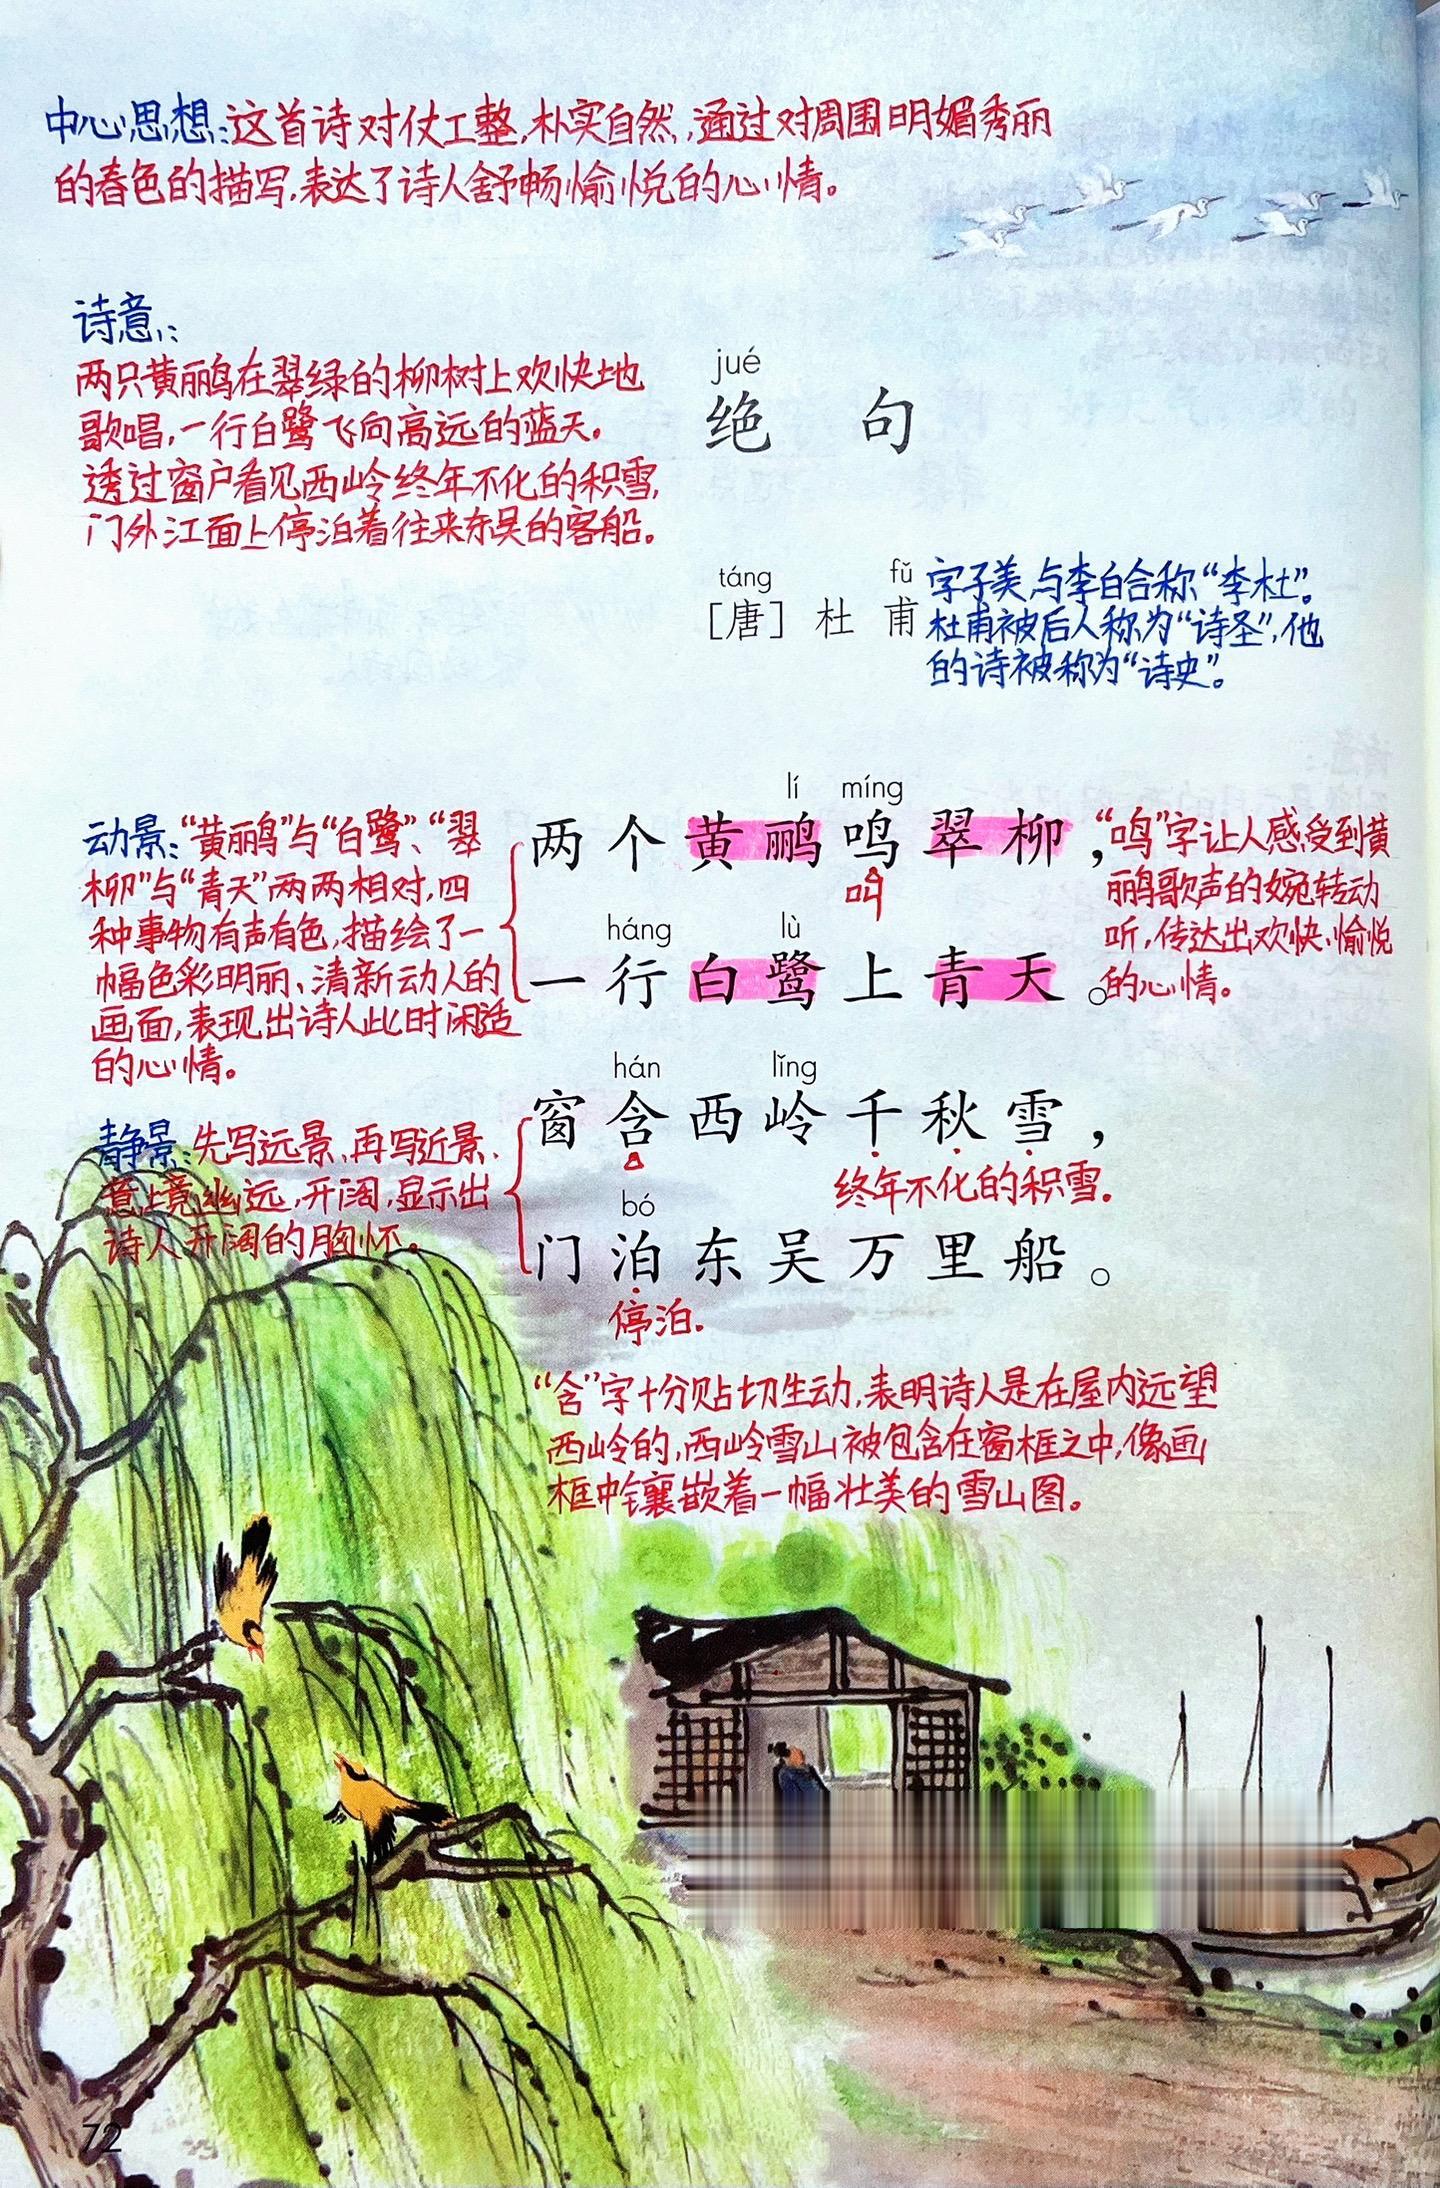 中心思想：这首诗对仗工整，朴实自然，通过对周围明媚秀丽
的春色的描写，表达了诗人舒畅愉悦的心情。
诗意：
两只黄鹂在翠绿的柳树上欢快地
歌唱，一行白鹭飞向高远的蓝天。
透过窗户看见西岭终年不化的积雪，
门外江面上停泊着往来东吴的客船。
jué
绝 句
táng fǔ
［唐］ 杜 甫
字子美，与李白合称“李杜”。
杜甫被后人称为“诗圣”，他
的诗被称为“诗史”。
动景：“黄丽鸟”与“白鹭”、“翠
柳”与“青天”两两相对，四
种事物有声有色，描绘了一
幅色彩明丽、清新动人的
画面，表现出诗人此时闲适
的心情。
lí míng
两个黄鹂鸣翠柳，
叫
háng lù
一行白鹭上青天。
“鸣”字让人感受到黄
鹂歌声的婉转动
听，传达出欢快、愉悦
的心情。
静景：先写远景、再写近景、
意境幽远，开阔，显示出
诗人开阔的胸怀。
hán lǐng
窗含西岭千秋雪，
终年不化的积雪.
bó
门泊东吴万里船。
停泊.
“含”字十分贴切生动，表明诗人是在屋内远望
西岭的，西岭雪山被包含在窗框之中，像画
框中镶嵌着一幅壮美的雪山图。
72